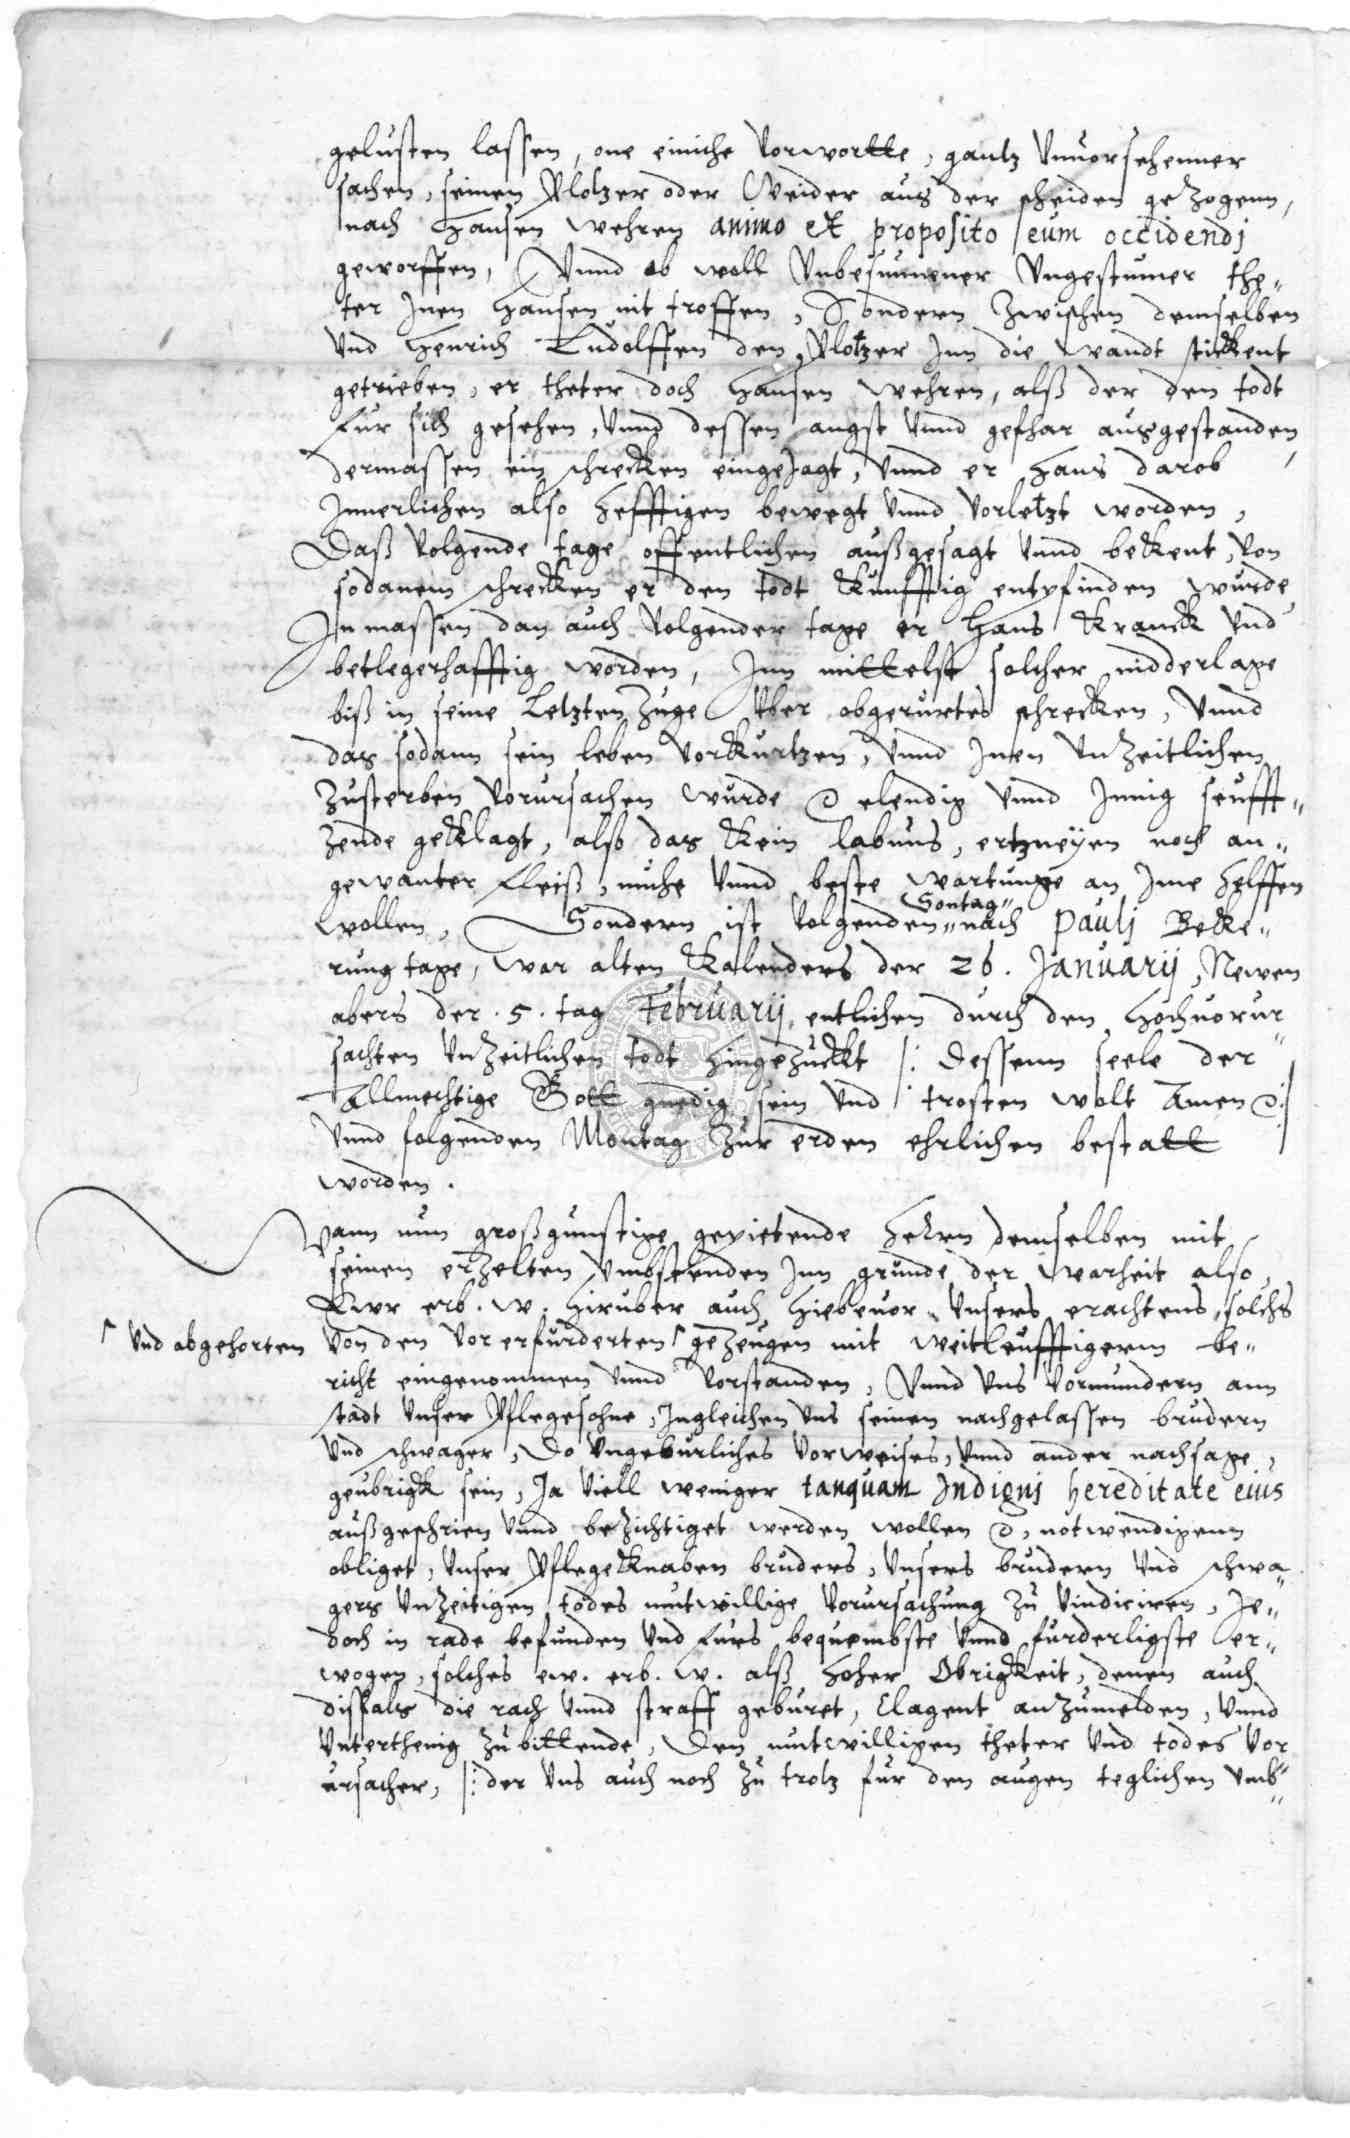 gelusten lassen, one einiche vorwortte, gantz vnuorsehenner
sachen, seinen Plotzer oder Weider aus der scheiden gezogenn,
nach Hansen wehren animo et proposito eum occidendj
geworffen, Vnnd ob woll vnbesunnener vngestumer the„
ter Jnen Hansen nit troffen, Sondern zwischen demselben
vnd Henrich Ludolffen den Plotzer Jnn die wandt stickent
getrieben, er theter doch Hansen wehren, alß der den todt
fur sich gesehen, vnnd dessen angst vnnd gefhar ausgestanden,
Dermassen ein schrecken eingejagt, vnnd er Hans darob
Jnnerlichen also hefftigen bewegt vnnd vorletzt worden,
Daß volgende tage offentlichen außgesagt vnnd bekent, von
sodanem schrecken er den todt kunfftig entpfinden wurde,
Jnmassen dan auch volgender tage er Hans kranck vnd
betlegerhafftig worden, Jnn mittelst solcher nidderlage
biß in seine letzten zuge vber obgerurtes schrecken, vnnd
das sodann sein leben vorkurtzen, vnnd Jnen vnzeitlichen
zusterben vorursachen wurde elendig vnnd Jnnig seufft„
zende geklagt, also das kein labnus, ertzneyen noch an„
gewanter fleiß, muhe vnnd beste wartunge an Jme helffen
wollen, Sondern ist volgenden „Sontag„ nach Paulj Beke„
rung tage, war alten Kalenders der 26. Januarij, Newen
abers der .5. tag Februarij, entlichen durch den hochuorur„
sachten vnzeitlichen todt hingezuckt /: Dessenn seele der
Allmechtige Gott gnedig sein vnd trosten wolt Amen :/
vnnd folgenden Montag zur erden ehrlichen bestatt
worden.
Wann nun großgunstige gepietende Hern demselben mit
seinen erzelten vmbstenden Jnn grunde der warheit also,
Ewr erb. w. hiruber auch hiebeuor vnsers erachtens, solchs
von den vor erfurderten ⌈ gezeugen mit weitleufftigerm be„
⌈ vnd abgehorten
richt eingenommen vnnd vorstanden, Vnnd vns vormundern ann
stadt vnser Pflegesohne, Jngleichen vns seinen nachgelassen brudern
vnd schwager, Do vngeburliches vorweises, vnnd ander nachsage,
geubrigk sein, Ja viell weniger tanquam Jndignj hereditate eius
außgeschrien vnnd bezichtiget werden wollen, notwendigenn
obliget, vnser Pflegeknaben bruders, vnsers brudern vnd schwa„
gers vnzeitigen todes mutwillige vorursachung zu vindiciren, Je„
doch in rade befunden vnd furs bequembste vnnd furderligste er„
wogen, solches ew. erb. w. alß hoher Obrigkeit, denen auch
disfals die rach vnnd straff geburet, Clagent anzumelden, vnnd
vnterthenig zu bittende, Den mutwilligen theter vnd todes vor„
ursacher, /: der vns auch noch zu trotz fur den augen teglichen vmb„